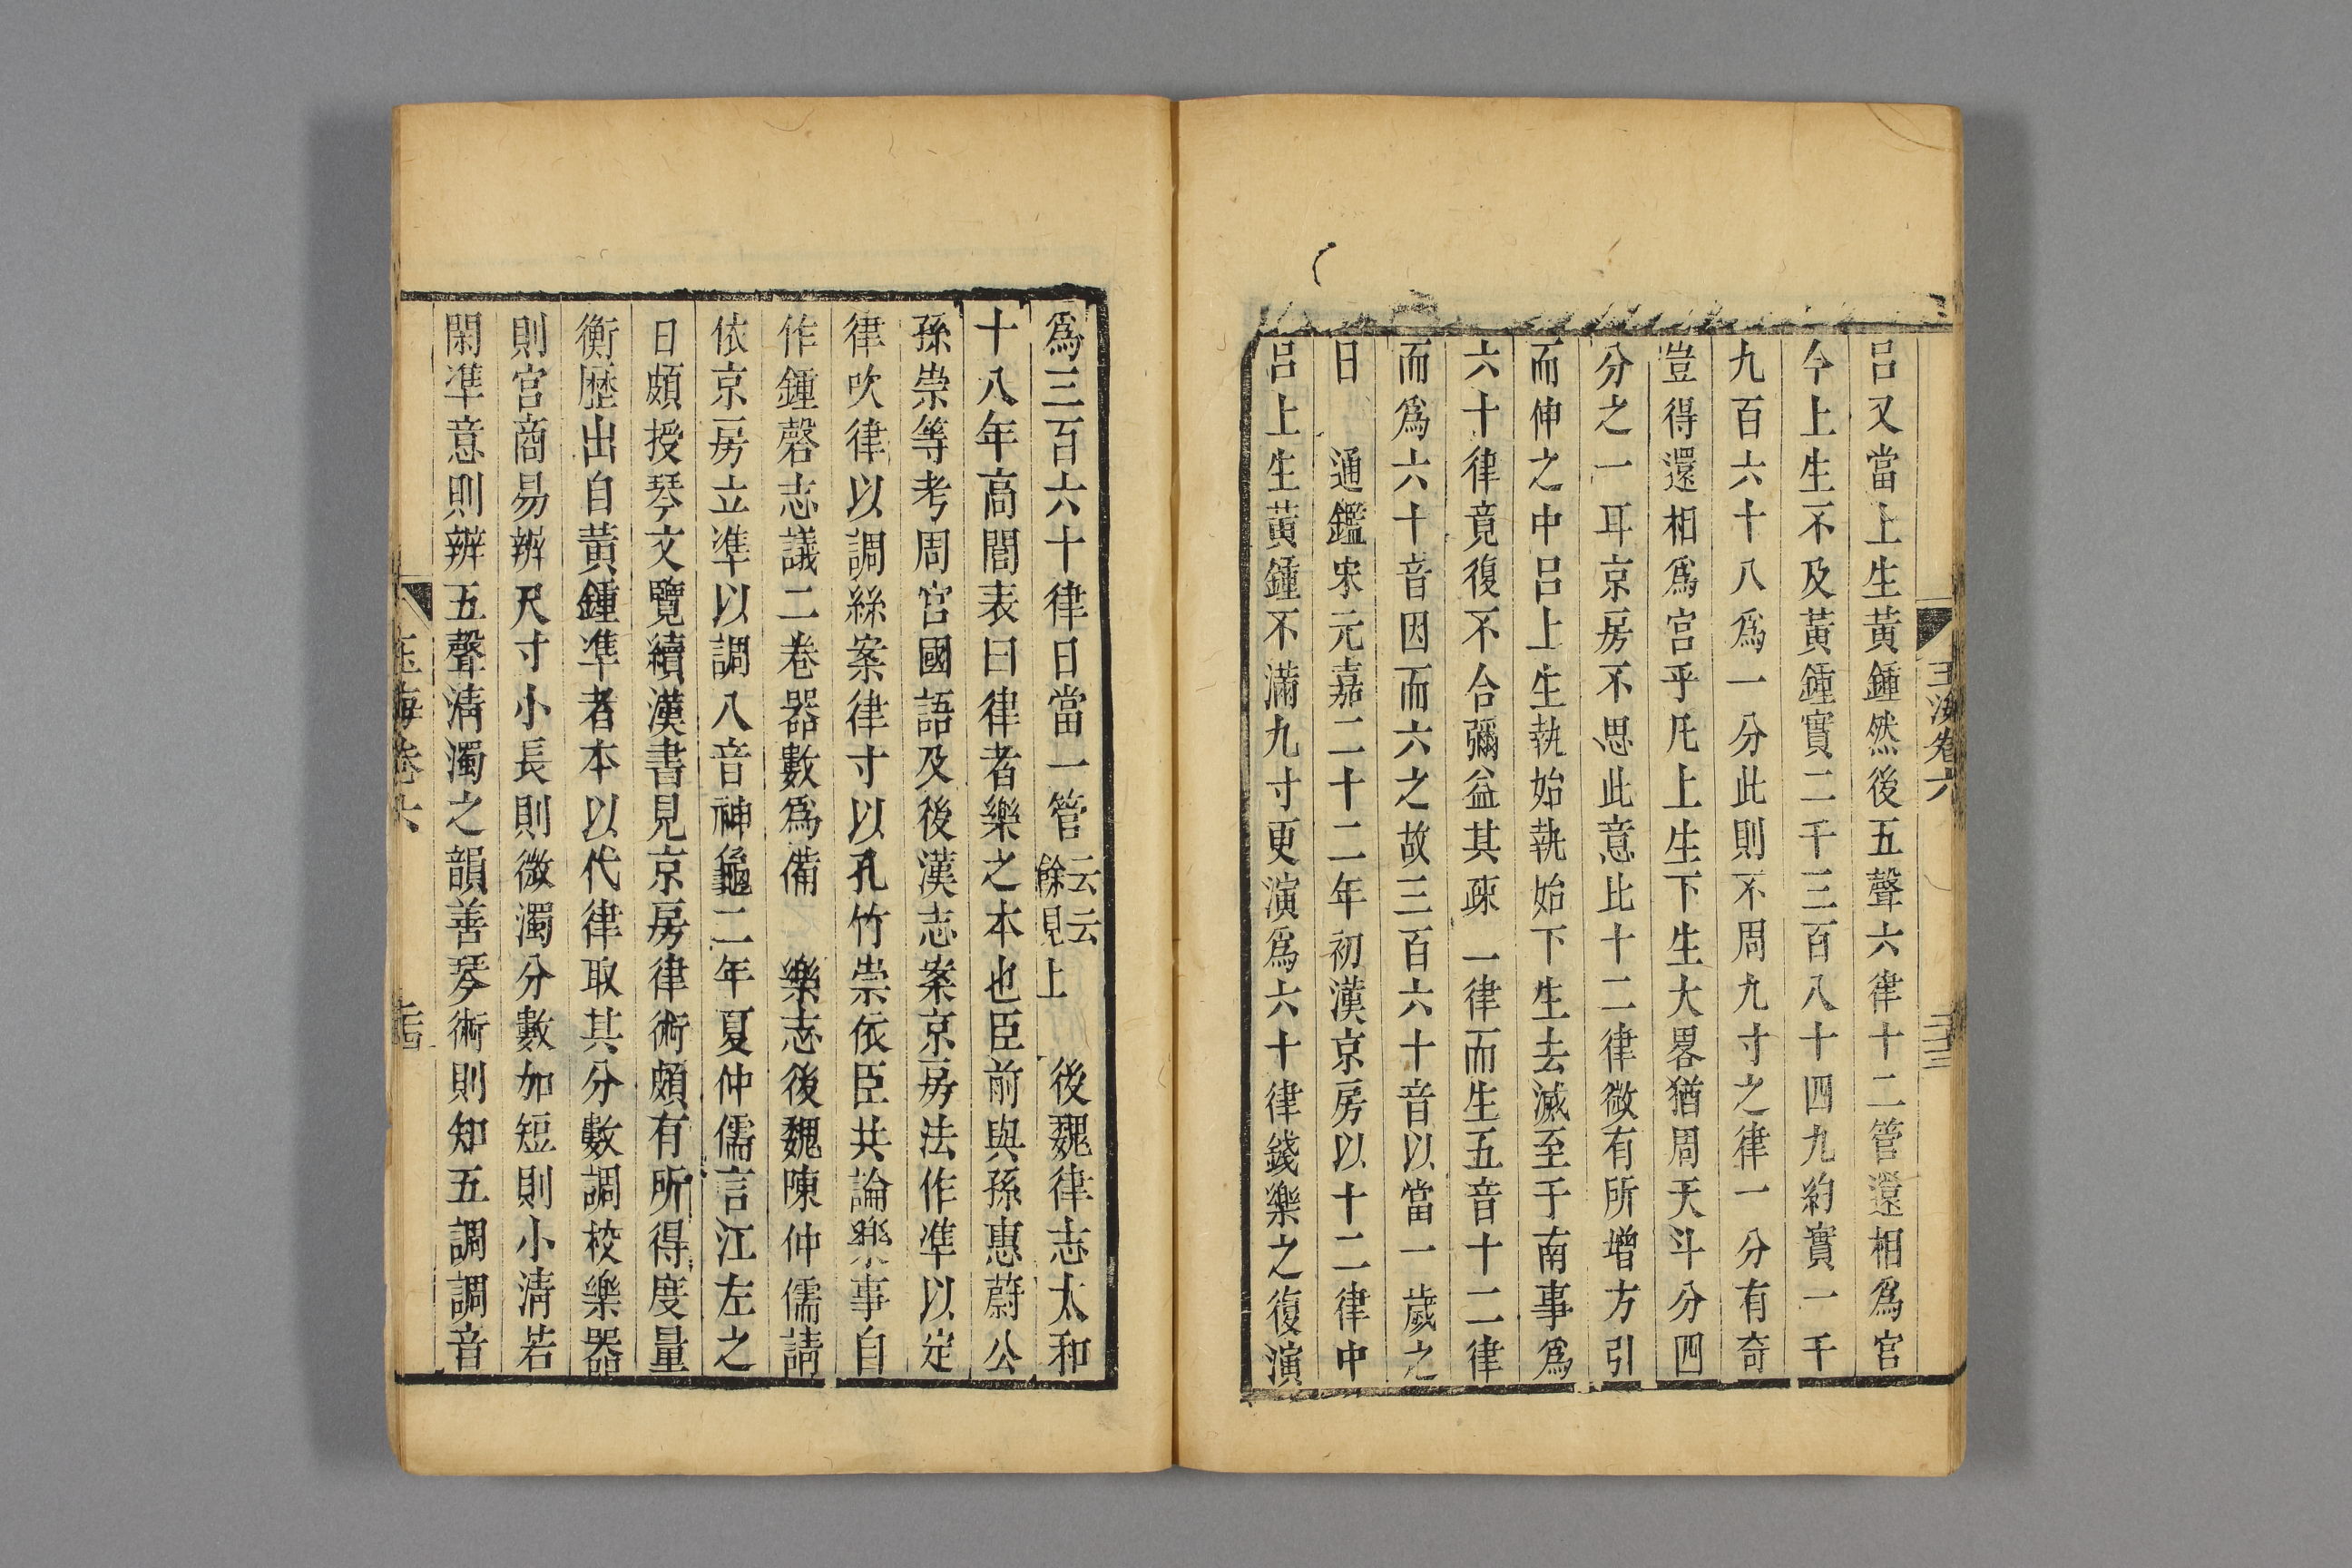 玉海卷六
二十三
呂又當上生黃鍾然後五聲六律十二管還相爲宮
今上生不及黃鍾實二千三百八十四九約實一千
九百六十八爲一分此則不周九寸之律一分有奇
豈得還相爲宮乎凡上生下生大畧猶周天斗分四
分之一耳京房不思此意比十二律微有所增方引
而伸之中呂上生執始執始下生去滅至于南事爲
六十律竟復不合彌益其疎 一律而生五音十二律
而爲六十音因而六之故三百六十音以當一歲之
日 通鑑宋元嘉二十二年初漢京房以十二律中
呂上生黃鍾不滿九寸更演爲六十律錢樂之復演
爲三百六十律日當一管云云餘見上 後魏律志太和
十八年高閭表曰律者樂之本也臣前與孫惠蔚公
孫崇等考周官國語及後漢志案京房法作準以定
律吹律以調絲案律寸以孔竹崇依臣共論樂事自
作鍾磬志議二卷器數爲備 樂志後魏陳仲儒請
依京房立準以調八音神龜二年夏仲儒言江左之
日頗授琴文覽續漢書見京房律術頗有所得度量
衡歷出自黃鍾準者本以代律取其分數調校樂器
則宮商易辨尺寸小長則微濁分數加短則小清若
閑準意則辨五聲清濁之韻善琴術則知五調調音
玉海卷六
二十四